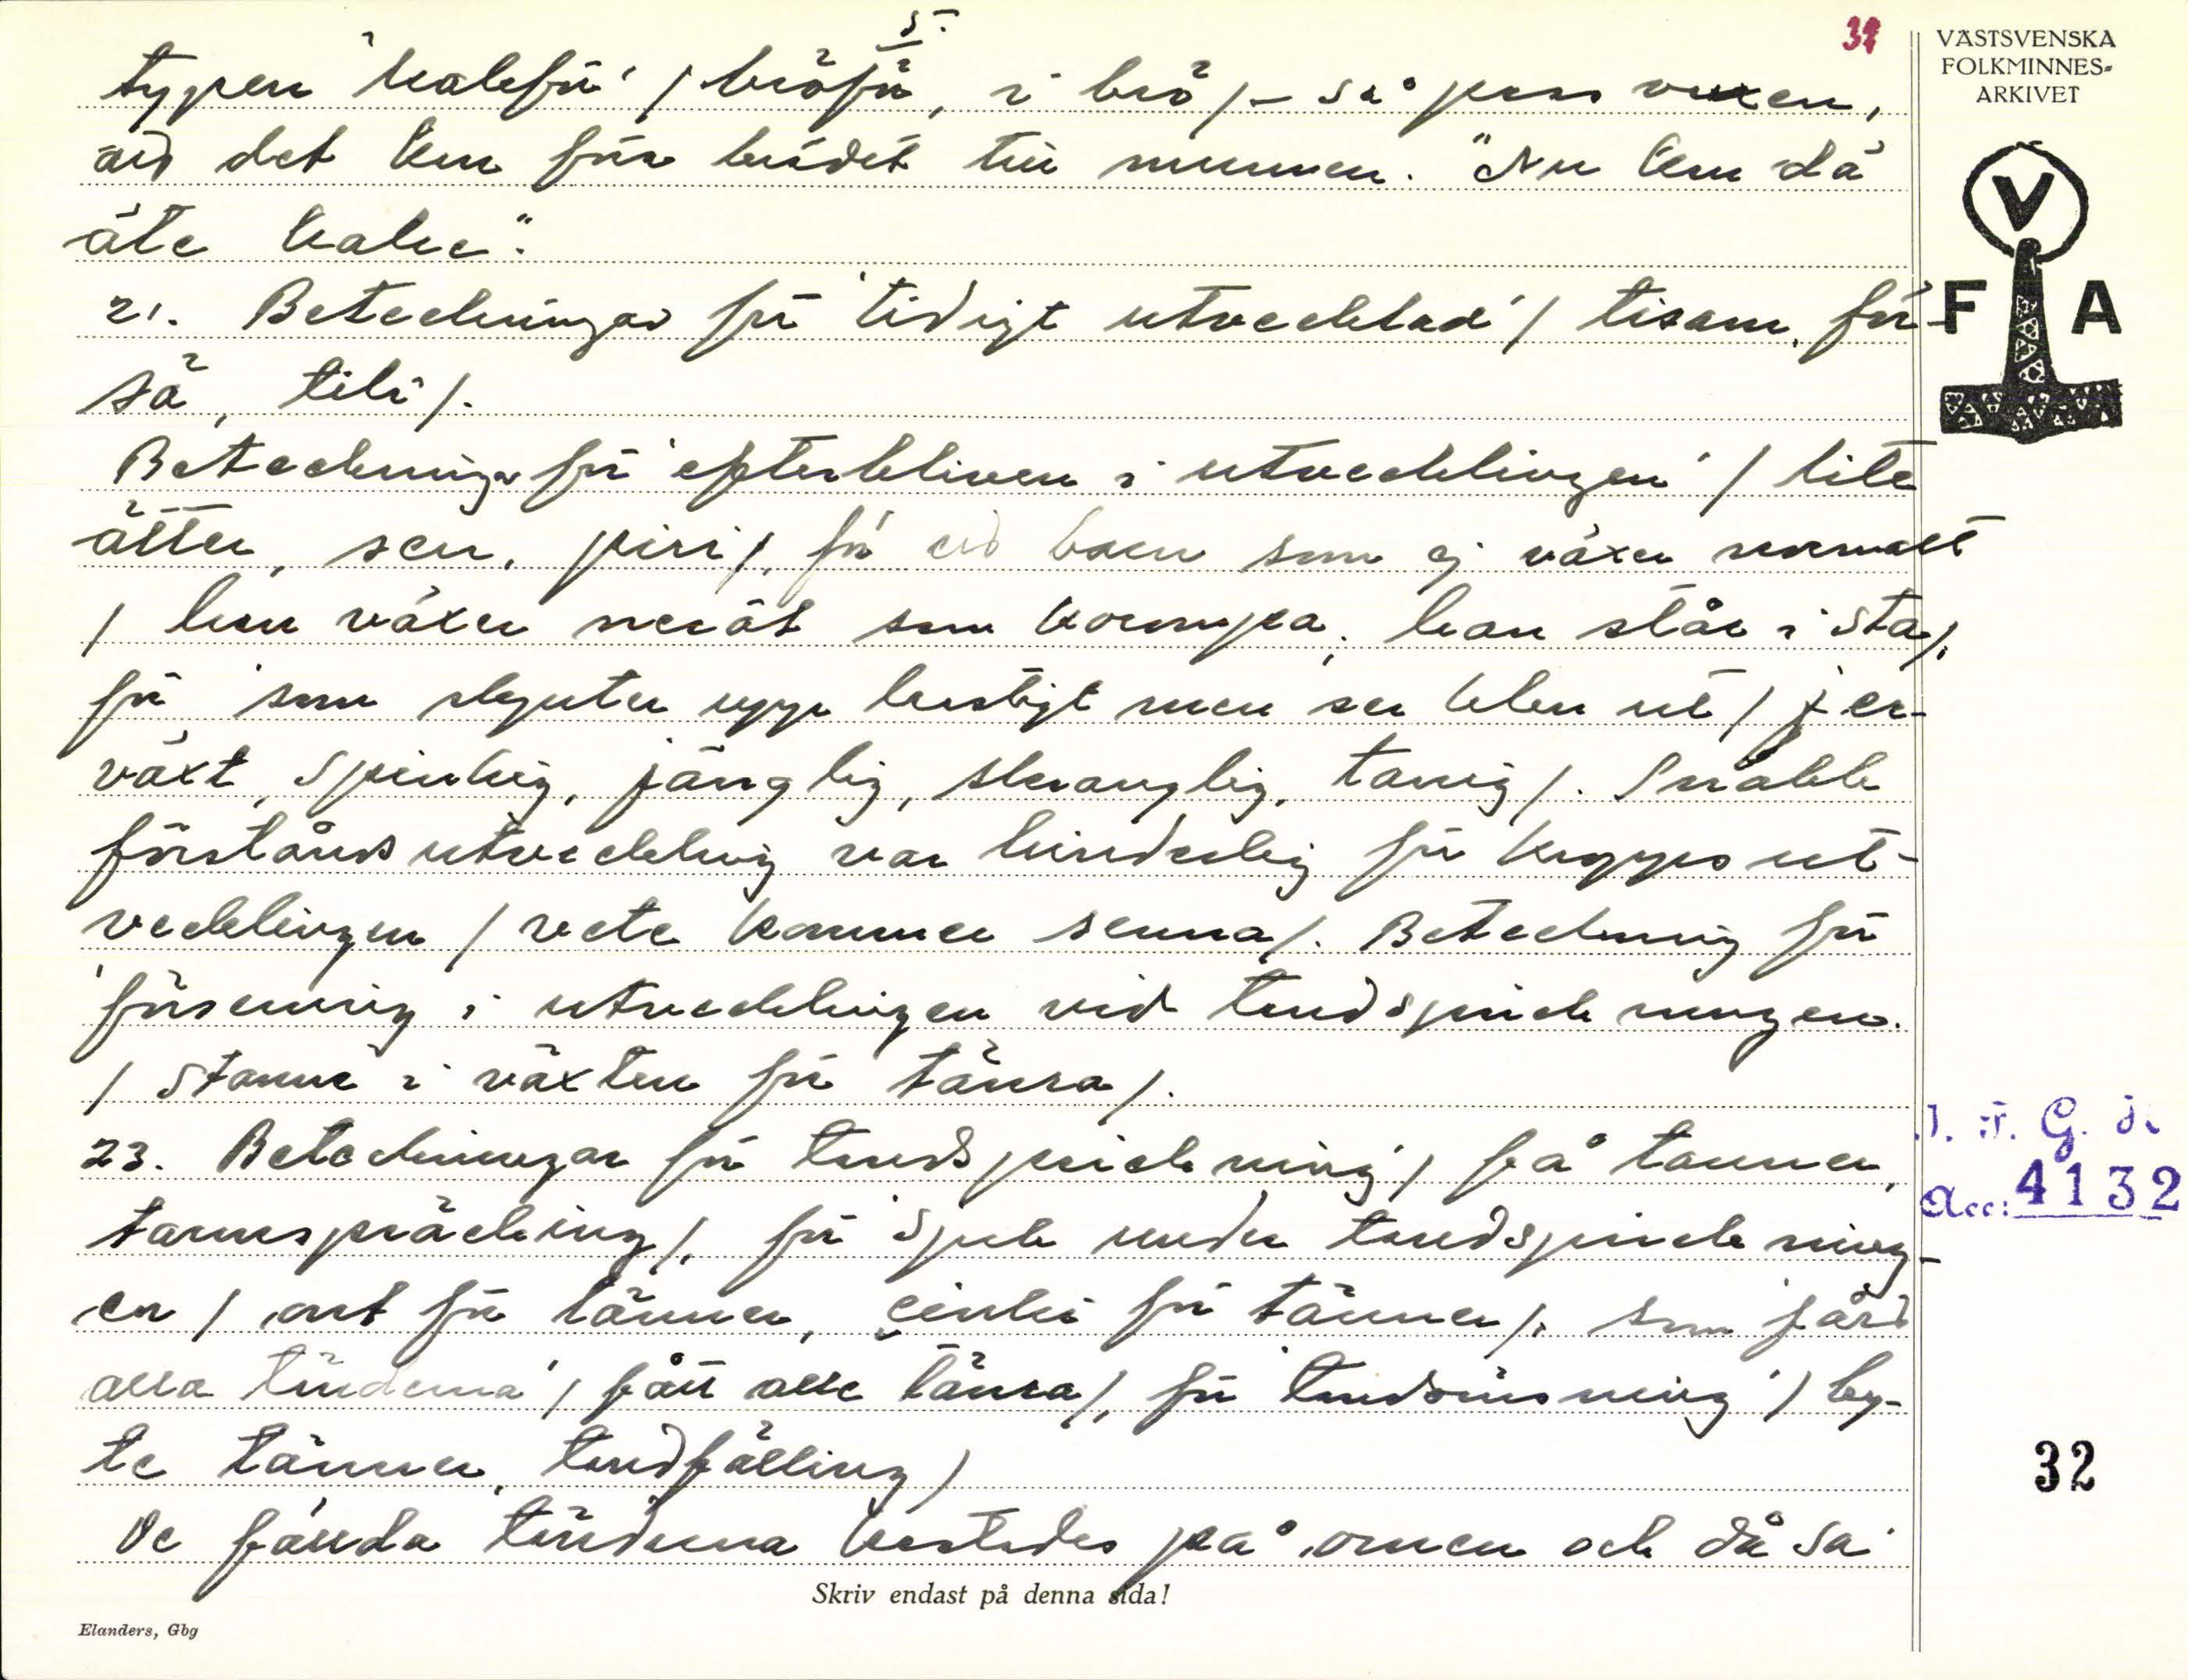 5.
32
VÄSTSVENSKA
FOLKMINNES-
ARKIVET
V
F A
typen / bröfö, i brö / - så pass vuxen,
att det kan föra brödet till munnen. "Nu kan dä
äte kake".
21. Beteckningar för 'tidigt utvecklad' / tisam, för
sä, tili /.
Beteckningar för 'efterbliven i utvecklingen' / lite
ätter, sen, piri /, för ett barn som ej växer normalt
/ hen växer neråt som korumpa, han står i sta /,
för 'som skjuter upp hastigt men ser klen ut' / jer-
växt, spinkig, jänglig, skranglig, tanig /. Snabb
förståndsutveckling var hinderlig för kroppsut-
vecklingen / vete kommer senna /. Beteckning för
'försening i utvecklingen vid tandsprickningen.
/ stanne i växten för tänra /.
23. Beteckningar för tandsprickning' / få tanner,
tannspräcking /, för 'sjuk under tandsprickning-
en / ont för tänner, för tänner /, som fått
alla tänderna' / fått alle tänra /, för 'tandömsning' / by-
te tänner, tandfälling /
De fällda tänderna kastades på och då sa
Skriv endast på denna sida!
Elanders, Gbg
I. F. G. H.
Acc: 4132
32